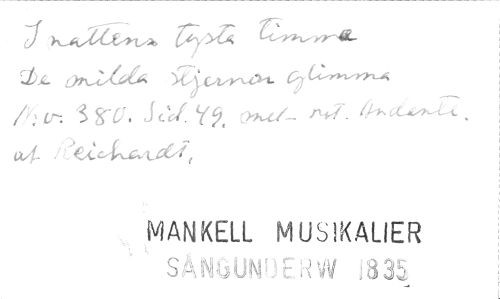 I nattens tysta timma
De milda stjernor glimma
N:o. 380. Sid. 49. mel- not. Andante.
af Reichardt.
MANKELL MUSIKALIER
SÅNGUNDERW 1835